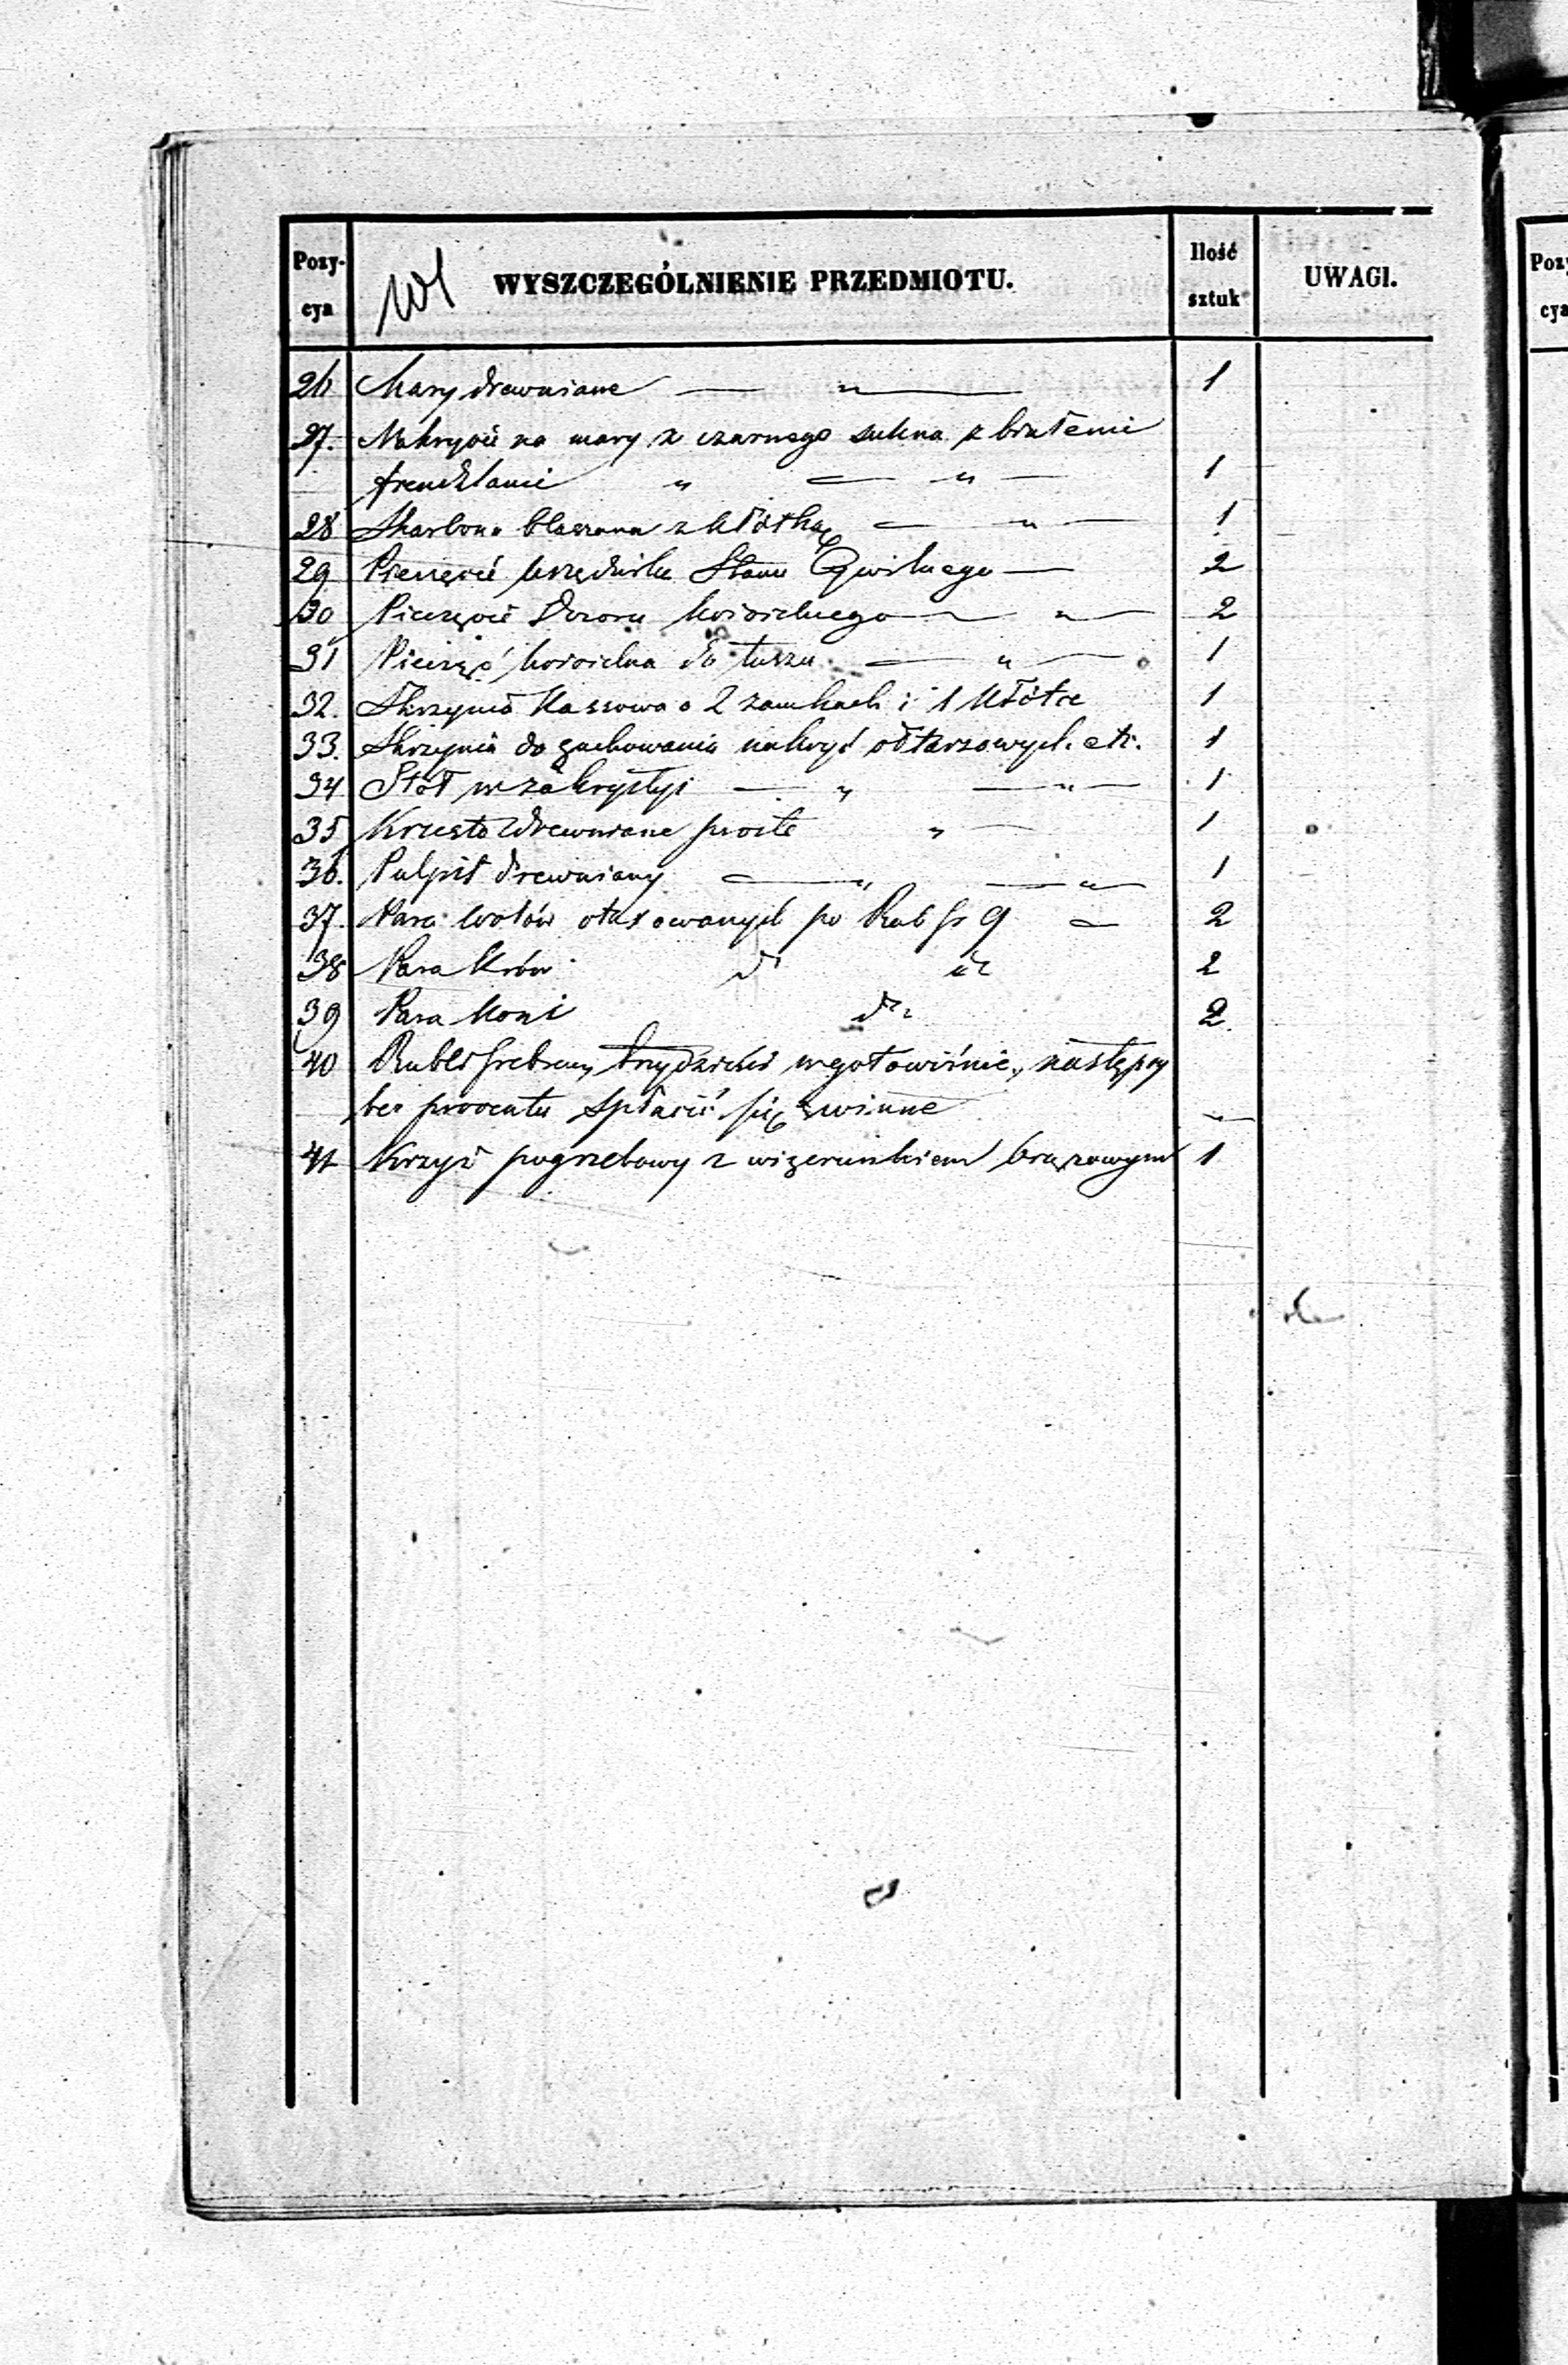 Pozy-
cya
WYSZCZEGÓLNIENIE PRZEDMIOTU.
Ilość
sztuk
UWAGI.
26 Mary drewniane — „ — 1
27. Nakrycie na mary z czarnego sukna z białemi
frendzlami „ — „ — 1
28 Skarbona blaszana z kłótką — „ — 1
29 Pieczęcie Urzędnika Stanu Cywilnego — 2
30 Pieczęcie Dozoru kościelnego — „ — 2
31 Pieczęć kościelna do tuszu — „ — 1
32. Skrzynia Kassowa o 2 zamkach i 1 kłótce 1
33. Skrzynia do zachowania nakryć ołtarzowych etc. 1
34 Stół w zakrystyi — „ — „ — 1
35 Krzesło drewniane proste „ — 1
36. Pulpit drewniany — „ — „ — 1
37. Para wołów otaxowanych po Rub sr 9 — 2
38 Para krów do 2
39 Para koni do 2
40 Rubli srebrem trzydzieści w gotowiźnie, następcy
bez procentu spłacić się winne —
41 Krzyż pogrzebowy z wizerunkiem brązowym 1
Pozy
cya